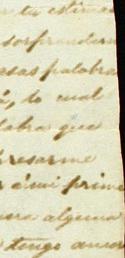 tu estima
sorprender
esas palabra
, lo cual
labra que
presarme
r á mi prime
una alguna
tengo amor